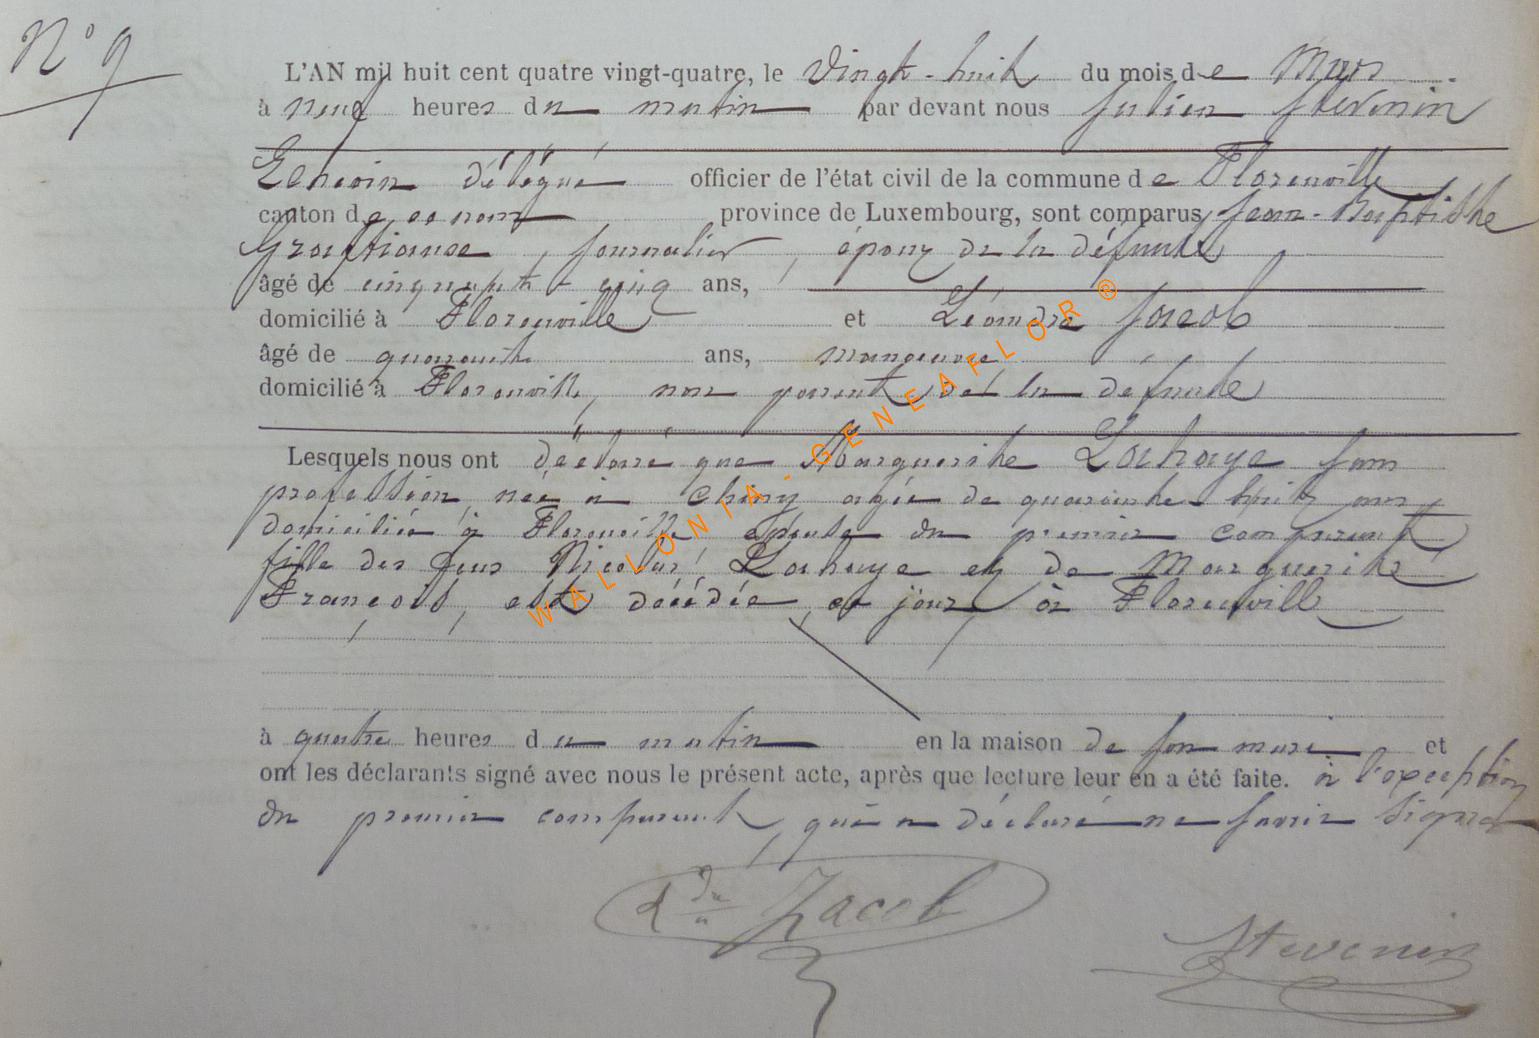 N° 9
L'AN mil huit cent quatre vingt-quatre, le vingt-huit du mois de Mars
à neuf heures du matin par devant nous Julien Stevenin
Echevin délégué officier de l'état civil de la commune de Florenville
canton de ce nom province de Luxembourg, sont comparus Jean-Baptiste
journalier, époux de la défunte
âgé de cinquante-cinq ans,
domicilié à Florenville et Léandre Jacob
âgé de quarante ans, manoeuvre
domicilié à Florenville, non parent de la défunte
Lesquels nous ont déclaré que Marguerite Lahaye sans
profession, née à Chiny agée de quarante huit ans
domiciliée à Florenville épouse du premier comparant
fille des feus Nicolas Lahaye et de Marguerite
François, est décédée, ce jour, à Florenville
à quatre heures du matin en la maison de son mari et
ont les déclarants signé avec nous le présent acte, après que lecture leur en a été faite. à l'exception
du premier comparant, qui a déclaré ne savoir signer
Jacob
Stevenin
WALLONIA-GENEAFLOR®